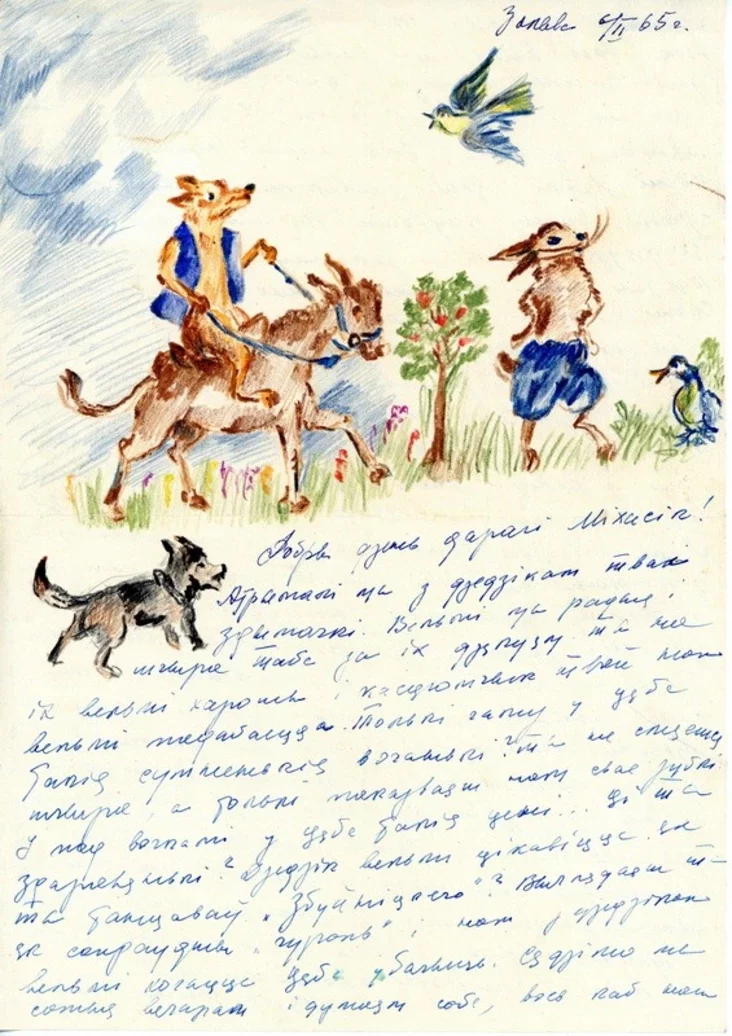 6/II 65 г.
Добры дзень дарагі Міхасік!
Атрымалі мы з дзедзікам твае
здымачкі. Вельмі мы рады і
шчыра табе за іх дзякуем. Ты на
іх вельмі харошы і касцюмчык твой нам
вельмі падабаецца. Толькі чаму у цябе
такія сумненькія вочанькі? Ты не смяешся
шчыра, а толькі паказваеш нам свае зубкі
У пад вочкамі у цябе такія цені... Ці ты
здаровенькі? Дзедзік вельмі цікавіцца як
ты танцаваў „Збуйніцкего"? Выглядаеш ты
як сапраўдны „гураль" і нам з дзедзікам
вельмі хочацца цябе убачыць. Сядзімо мы
вечарам і думаем сабе, вось каб наш